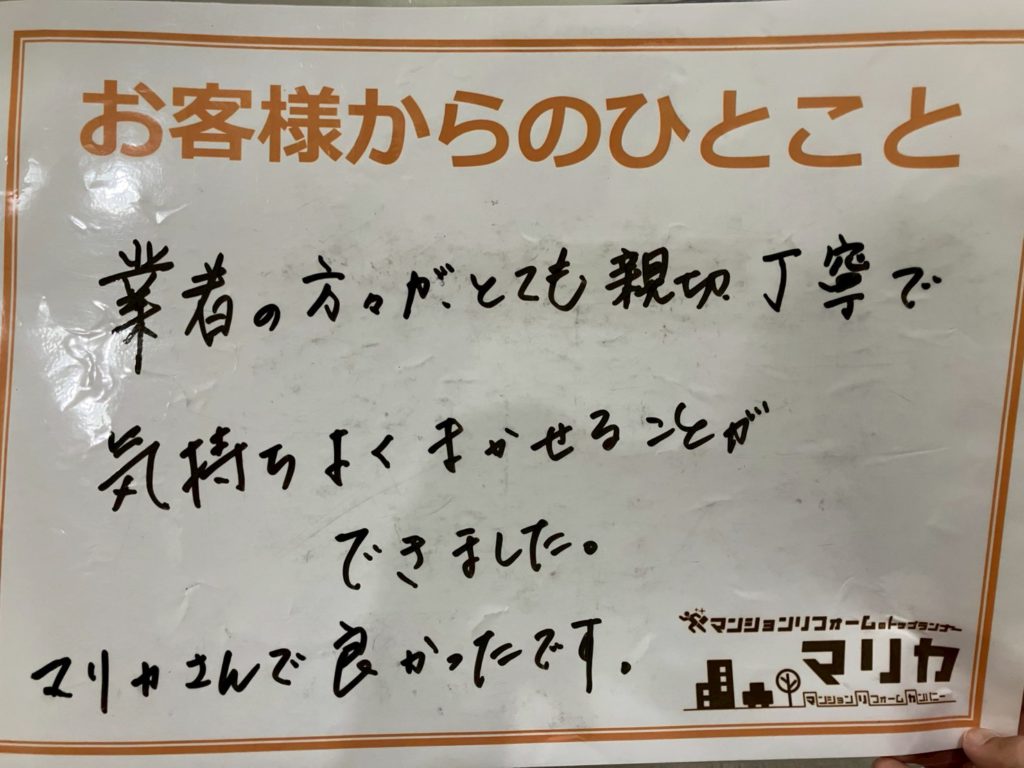 お客様からのひとこと
業者の方々が、とても親切丁寧で
気持ちよくまかせることが
できました。
マリカさんで良かったです。
マンションリフォームのトップランナー
マリカ
マンションリフォームカンパニー